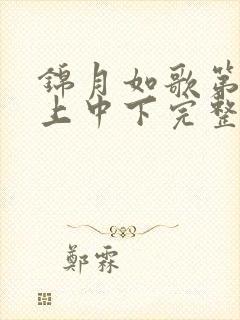 錦月如歌第
上中下完整
鄭霖